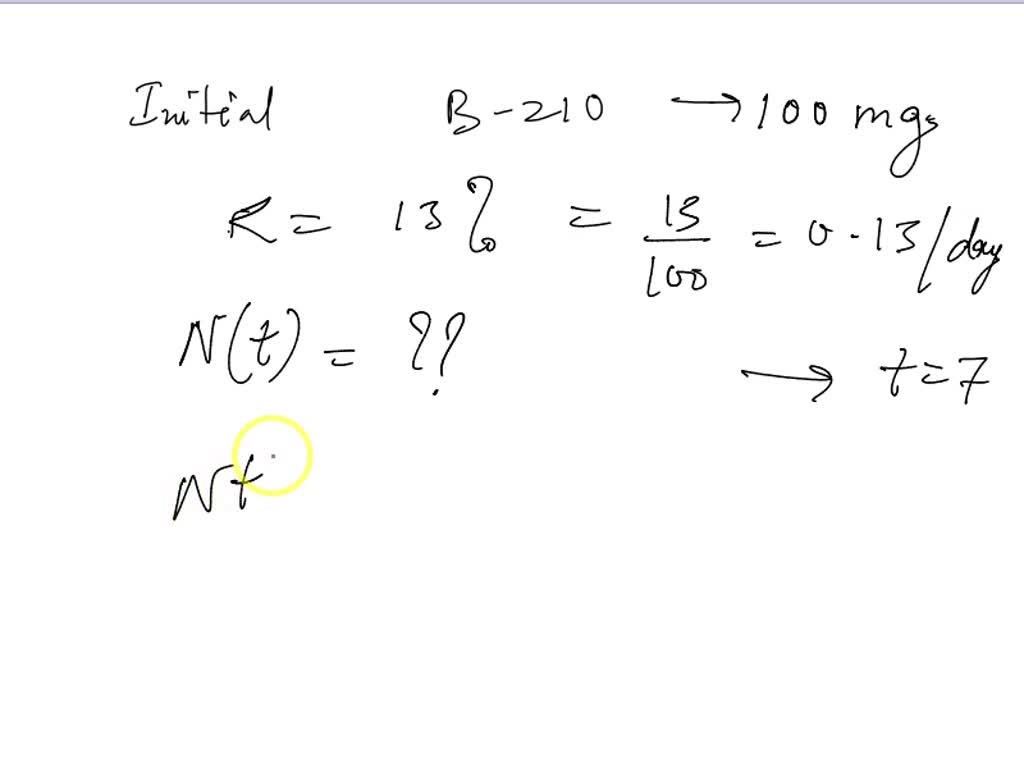 Initial B-210 → 100 mgs
R = 13% = 13/100 = 0.13/day
N(t) = ??
→ t=7
Nt